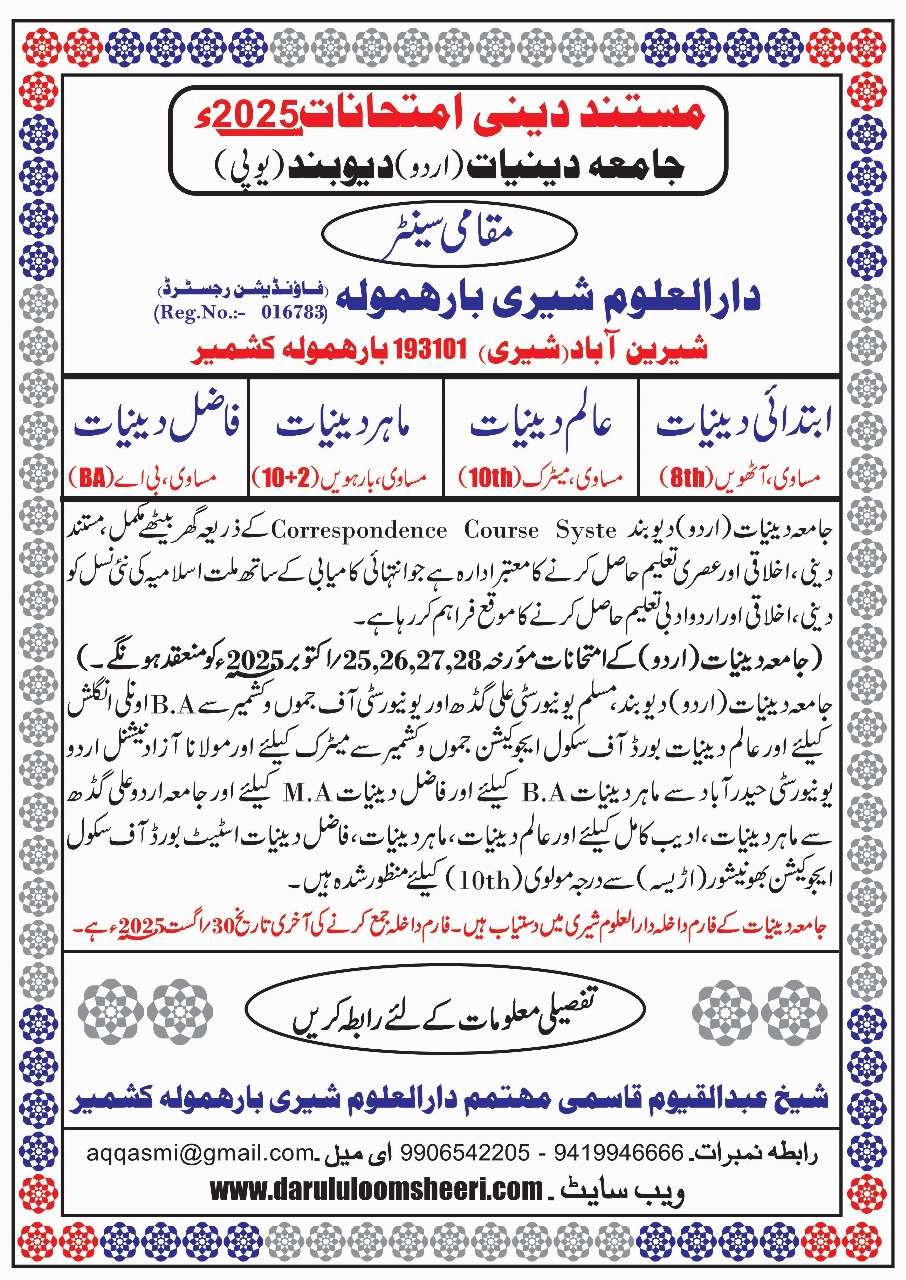 مستند دینی امتحانات 2025ء
جامعہ دینیات (اردو) دیوبند (یوپی)
مقامی سینٹر
دارالعلوم شیری بارھمولہ (فاؤنڈیشن رجسٹرڈ)
(Reg.No.:- 016783)
شیرین آباد (شیری) 193101 بارھمولہ کشمیر
ابتدائی دینیات
مساوی، آٹھویں (8th)
عالم دینیات
مساوی، میٹرک (10th)
ماہر دینیات
مساوی، بارہویں (10+2)
فاضل دینیات
مساوی، بی اے (BA)
جامعہ دینیات (اردو) دیوبند Correspondence Course Syste کے ذریعہ گھر بیٹھے مکمل، مستند
دینی، اخلاقی اور عصری تعلیم حاصل کرنے کا معتبر ادارہ ہے جو انتہائی کامیابی کے ساتھ ملت اسلامیہ کی نئی نسل کو
دینی، اخلاقی اور اردو ادبی تعلیم حاصل کرنے کا موقع فراہم کر رہا ہے۔
(جامعہ دینیات (اردو) کے امتحانات مؤرخہ 25,26,27,28/اکتوبر 2025ء کو منعقد ہونگے۔)
جامعہ دینیات (اردو) دیوبند، مسلم یونیورسٹی علی گڈھ اور یونیورسٹی آف جموں وکشمیر سے B.A اونلی انگلش
کیلئے اور عالم دینیات بورڈ آف سکول ایجوکیشن جموں وکشمیر سے میٹرک کیلئے اور مولانا آزاد نیشنل اردو
یونیورسٹی حیدرآباد سے ماہر دینیات B.A کیلئے اور فاضل دینیات M.A کیلئے اور جامعہ اردو علی گڈھ
سے ماہر دینیات، ادیب کامل کیلئے اور عالم دینیات، ماہر دینیات، فاضل دینیات اسٹیٹ بورڈ آف سکول
ایجوکیشن بھونیشور (اڑیسہ) سے درجہ مولوی (10th) کیلئے منظور شدہ ہیں۔
جامعہ دینیات کے فارم داخلہ دارالعلوم شیری میں دستیاب ہیں۔ فارم داخلہ جمع کرنے کی آخری تاریخ 30/اگست 2025ء ہے۔
تفصیلی معلومات کے لئے رابطہ کریں
شیخ عبدالقیوم قاسمی مھتمم دارالعلوم شیری بارھمولہ کشمیر
رابطہ نمبرات۔ 9419946666 - 9906542205 ای میل ۔ aqqasmi@gmail.com
ویب سایٹ ۔ www.darululoomsheeri.com